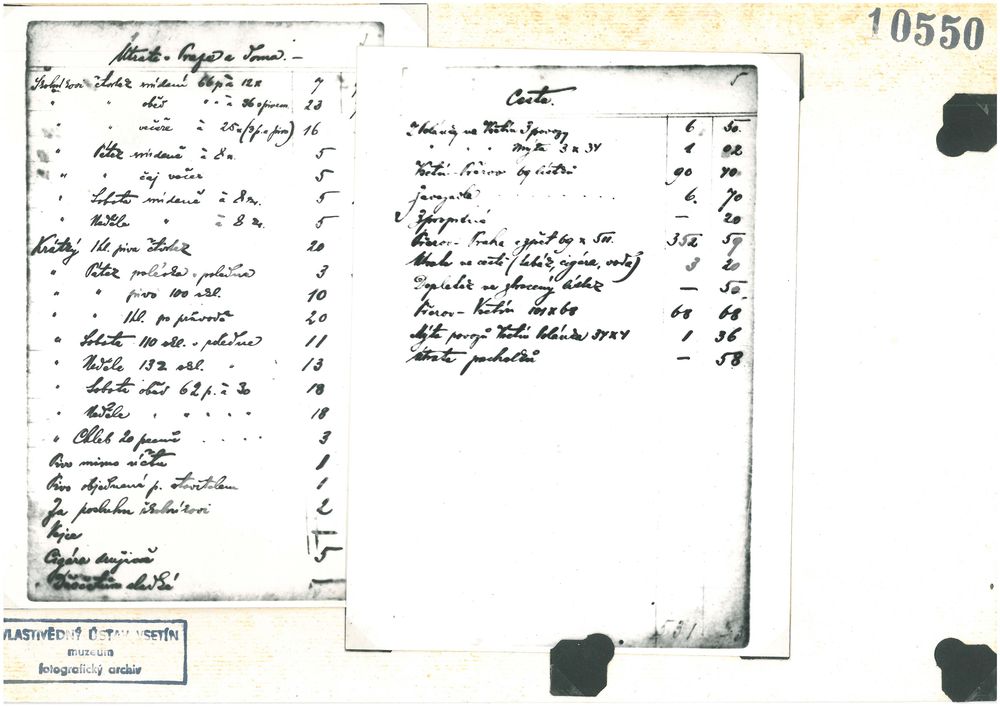 10550
Útrata v Praze a doma. –
Školníkovi čtvrtek snídaní 66 p à 12 x 7
" " oběd " " à 36 s pivem 23
" " večeře à 25 x (3 p. piva) 16
" Pátek snídaně à 8 x. 5
" " čaj večer 5
" Sobota snídaně à 8 x. 5
" Neděle " à 8 x. 5
Krátký 1 hl. piva čtvrtek 20
" Pátek polévka v poledne 3
" " pivo 100 skl. 10
" " 1 hl. po průvodě 20
" Sobota 110 skl. v poledne 11
" Neděle 132 skl. " 13
" Sobota oběd 62 p. à 30 18
" Neděle " " " " 18
" Chleb 20 pecnů . . . . 3
Pivo mimo účtu 1
Pivo objednané p. stavitelem 1
Za posluhu školníkovi 2
Vejce
Cigára družině 5
sladké
5
Cesta.
Z Polánky na Vsetín 3 povozy 6 50.
" " " " Mýta 3 x 34 1 02
Vsetín – Přerov 69 lístků 90 70
Zavazadla . . . . . . . . 6. 70
Zpropitné – 20
Přerov – Praha a zpět 69 x 511. 352 59
Útrata na cestě (tabák, cigára, voda) 3 20
Doplatek na ztracený lístek – 50
Přerov – Vsetín 101 x 68 68 68
Mýta povozů Vsetín Polánka 34 x 4 1 36
Útrata pacholků – 58
531
VLASTIVĚDNÝ ÚSTAV VSETÍN
muzeum
fotografický archiv